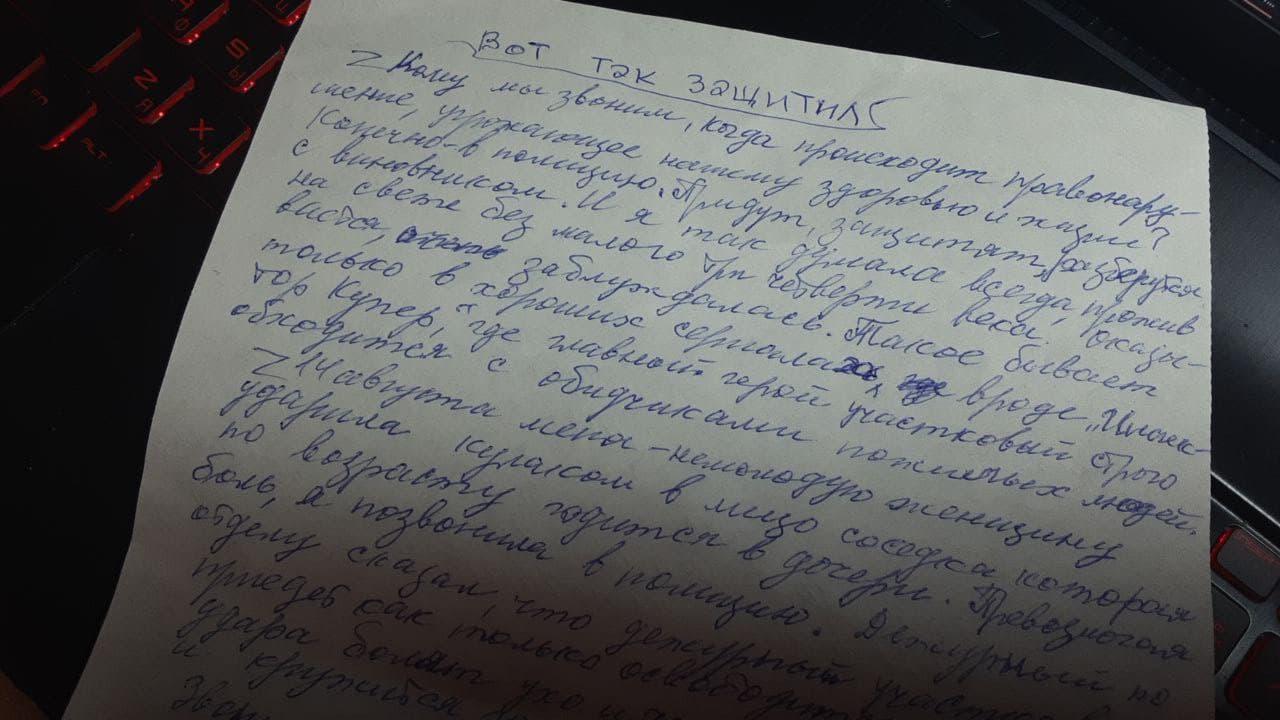 Вот так защитил(
Z Кому мы звоним, когда происходит правонару-
шение, угрожающее нашему здоровью и жизни?
Конечно-в полицию. Придут, защитят, разберутся
с виновником. И я так думала всегда, прожив
на свете без малого три четверти века. Оказы-
вается, заблуждалась. Такое бывает
только в хороших сериалах, вроде „Инспек-
тор Купер," где главный герой участковый строго
обходится с обидчиками пожилых людей.
Z 14 августа меня-немолодую женщину
ударила кулаком в лицо соседка которая
по возрасту годится в дочери. Превозмогая
боль, я позвонила в полицию. Дежурный по
отделу сказал, что дежурный
приедет как только
удара болит ухо и
и кружится